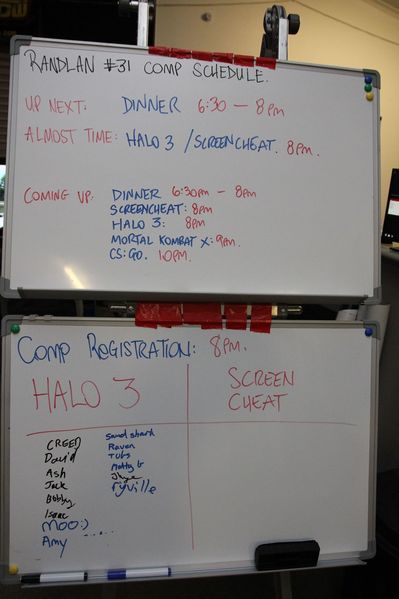 RANDLAN #31 COMP SCHEDULE.
UP NEXT: DINNER 6:30 — 8pm
ALMOST TIME: HALO 3 / SCREENCHEAT. 8pm.
COMING UP: DINNER 6:30pm — 8pm
SCREENCHEAT: 8pm
HALO 3: 8pm
MORTAL KOMBAT X: 9pm.
CS:GO. 10pm.
COMP REGISTRATION: 8pm.
HALO 3
SCREEN
CHEAT
CREED
David
Ash
Jack
Bobby
Isaac
MOO:)
Amy .....
Sand shark
Raven
TUBS
Matty b
ryville